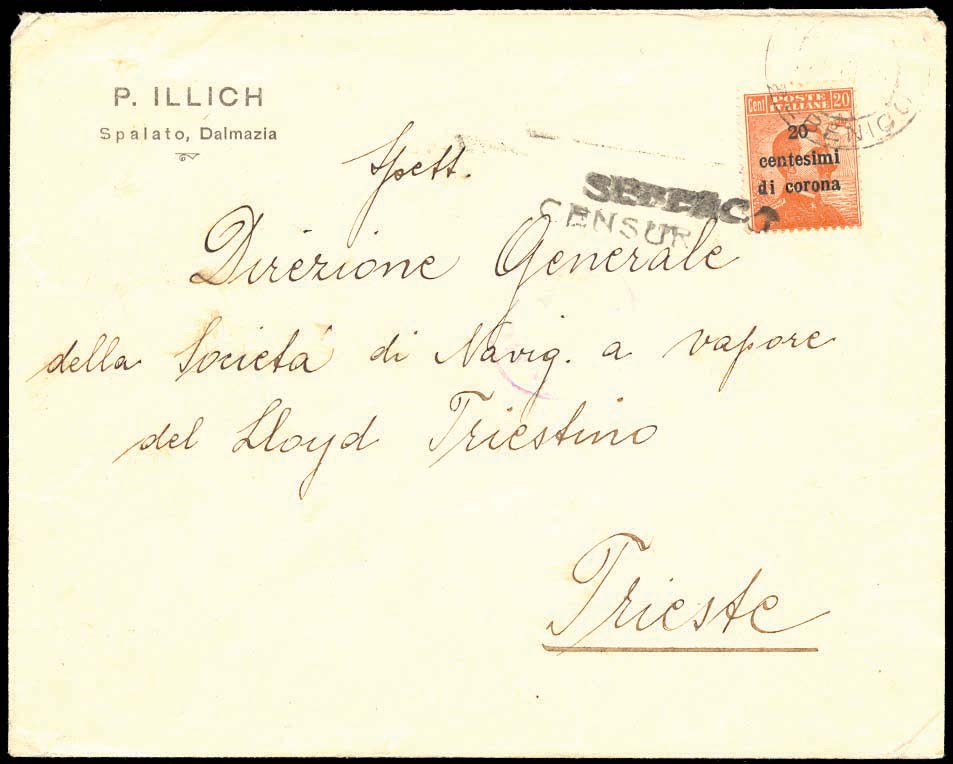 P. ILLICH
Spalato, Dalmazia
Cent POSTE ITALIANE 20
20
centesimi
di corona
CENSUR
Spett.
Direzione Generale
della Societá di Navig. a vapore
del Lloyd Triestino
Trieste